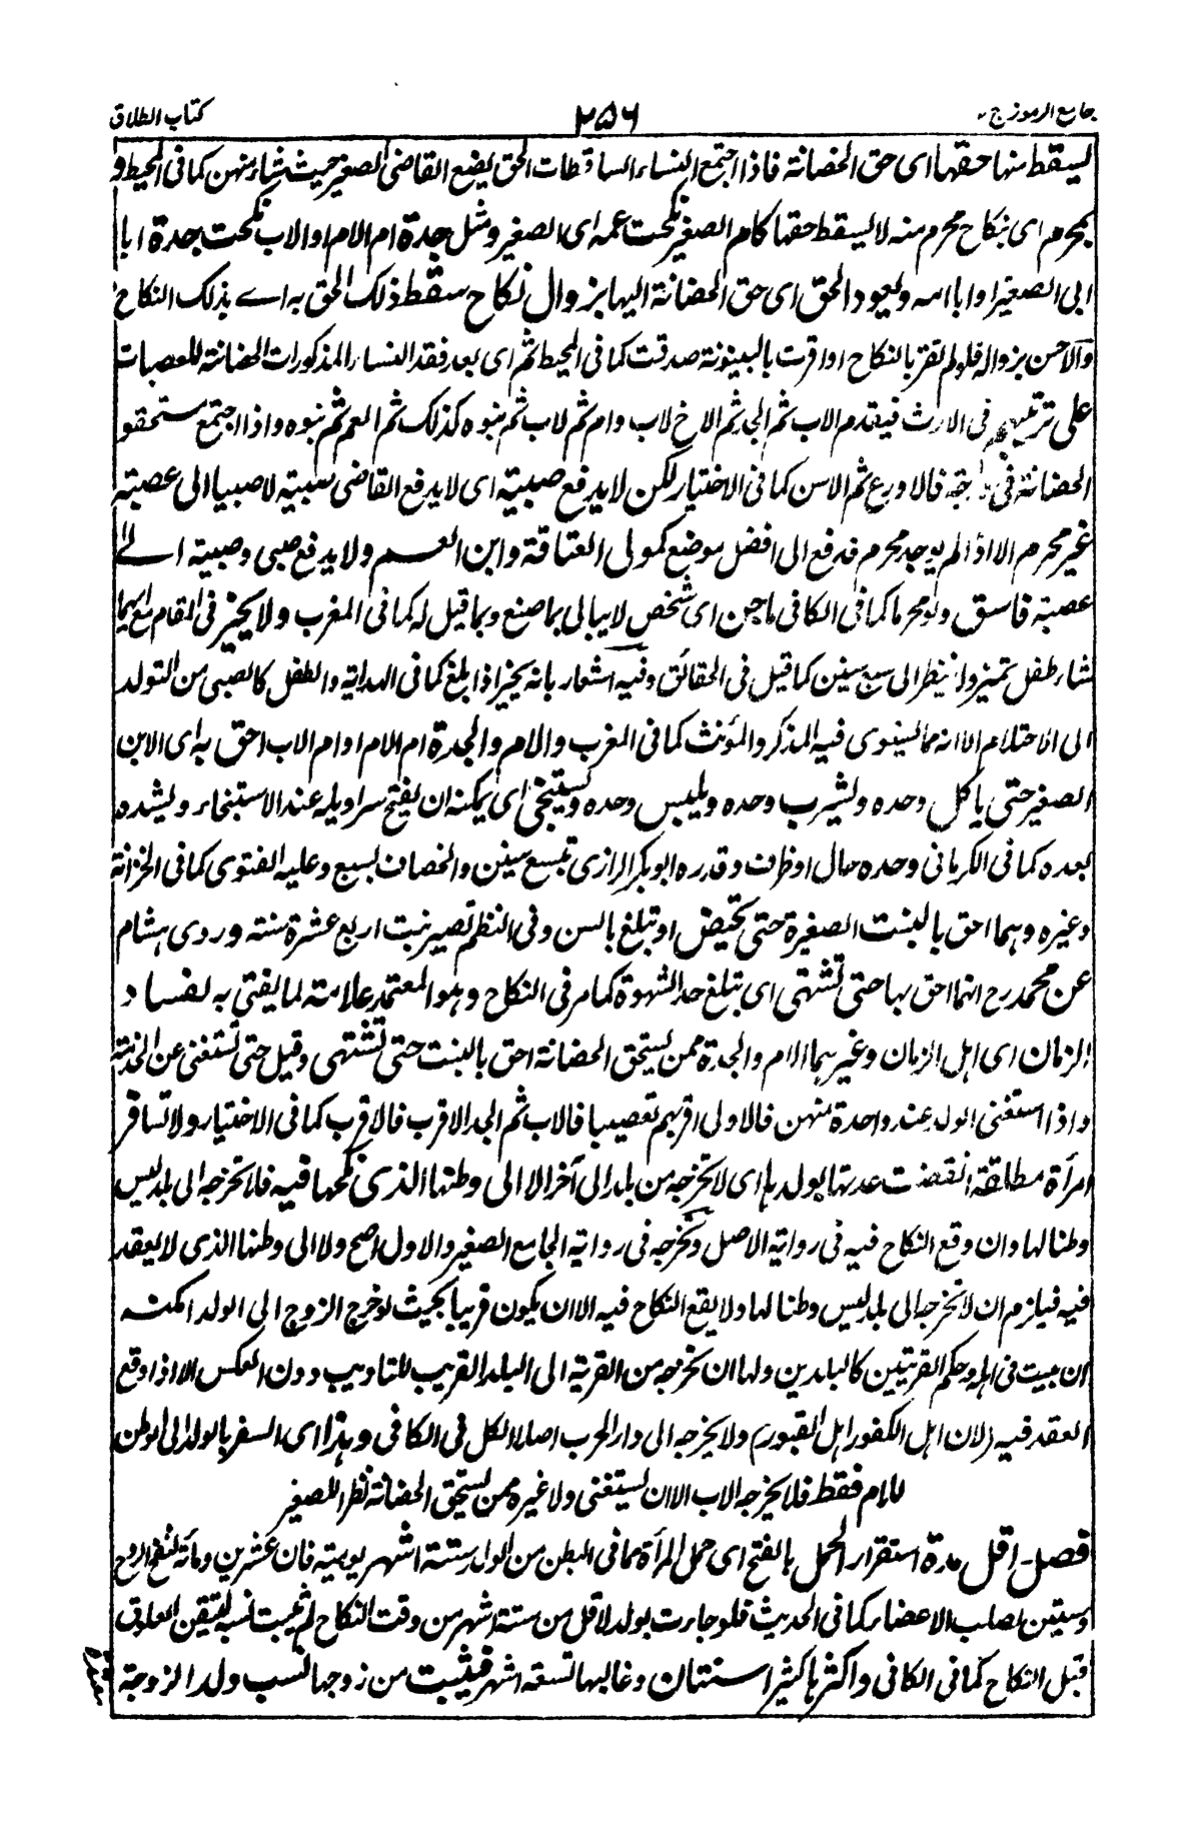 جامع الرموز ج ٢
٢٥٦
كتاب الطلاق
يسقط منها حقها اى حق الحضانة فاذا اجتمع النساء الساقطات الحق يضع القاضى الصغير حيث شاء منهن كما فى المحيط و
بمحرم اى بنكاح محرم منه لا يسقط حقها كام الصغير نكحت عمه اى الصغير ومثل جدة ام الام او الاب نكحت جدة ابا
ابى الصغير او ابا امه ويعود الحق اى حق الحضانة اليها بزوال نكاح سقط ذلك الحق به اے بذلك النكاح
والاحسن بزواله فلو لم تقر بالنكاح او اقرت بالبينونة صدقت كما فى المحيط ثم اى بعد فقد النساء المذكورات الحضانة للعصبات
على ترتيبهم فى الارث فيقدم الاب ثم الجد ثم الاخ لاب وام ثم لاب ثم بنوه كذلك ثم العم ثم بنوه واذا اجتمع مستحقو
الحضانة فى درجة فالاورع ثم الاسن كما فى الاختيار لكن لا يدفع صبية اى لا يدفع القاضى صبية لا صبيا الى عصبة
غير محرم الا اذا لم يوجد محرم فدفع الى افضل موضع كمولى العتاقة وابن العم ولا يدفع صبى وصبية الے
عصبة فاسق ولو محرما كما فى الكافى ماجن اى شخص لا يبالى بما صنع وبما قيل له كما فى المغرب ولا يخير فى المقام مع ايهما
شاء طفل تميز وان نظر الى سبع سنين كما قيل فى الحقائق وفيه اشعار بانه يخير اذا بلغ كما فى الهداية والطفل كالصبى من التولد
الى الاحتلام الا انه مما يستوى فيه المذكر والمؤنث كما فى المغرب والام والجدة ام الام او ام الاب احق به اى الابن
الصغير حتى ياكل وحده ويشرب وحده ويلبس وحده ويستنجى اى يمكنه ان يفتح سراويله عند الاستنجاء ويشده
بعده كما فى الكرمانى وحده حال او ظرف وقدره ابو بكر الرازى بتسع سنين والخصاف بسبع وعليه الفتوى كما فى الخزانة
وغيره وهما احق بالبنت الصغيرة حتى تحيض او تبلغ بالسن وفى النظم تصير بنت اربع عشرة سنة وروى هشام
عن محمد رح انهما احق بها حتى تشتهى اى تبلغ حد الشهوة كما مر فى النكاح وهو المعتمد علامة لما يفتى به لفساد
الزمان اى اهل الزمان وغيرهما الام والجدة ممن يستحق الحضانة احق بالبنت حتى تشتهى وقيل حتى تستغنى عن الخدمة
واذا استغنى الولد عند واحدة منهن فالاولى اقربهم تعصيبا فالاب ثم الجد الاقرب فالاقرب كما فى الاختيار ولا تسافر
امرأة مطلقة انقضت عدتها بولدها اى لا تخرجه من بلد الى آخر الا الى وطنها الذى نكحها فيه فلا تخرجه الى بلد ليس
وطنا لها وان وقع النكاح فيه فى رواية الاصل وتخرجه فى رواية الجامع الصغير والاول اصح ولا الى وطنها الذى لا يعقد
فيه فيلزم ان لا تخرجه الى بلد ليس وطنا لها ولا يقع النكاح فيه الا ان يكون قريبا بحيث لو خرج الزوج الى الولد امكنه
ان يبيت فى اهله وحكم القريتين كالبلدين ولها ان تخرجه من القرية الى البلد القريب للتاديب دون العكس الا اذا وقع
العقد فيه (لان اهل الكفور اهل القبور) ولا يخرجه الى دار الحرب اصلا الكل فى الكافى وهذا اى السفر بالولد الى الوطن
للام فقط فلا يخرجه الاب الا ان يستغنى ولا غيره ممن يستحق الحضانة نظرا للصغير
فصل- اقل مدة استقرار الحمل بالفتح اى حمل المرأة مما فى البطن من الولد ستة اشهر يومية فان عشرين ومأة لنفخ الروح
وستين لصلب الاعضاء كما فى الحديث فلو جاءت بولد لاقل من ستة اشهر من وقت النكاح لم يثبت نسبه لتيقن العلوق
قبل النكاح كما فى الكافى واكثرها كثيرا سنتان وغالبها تسعة اشهر فيثبت من زوجها نسب ولد الزوجة